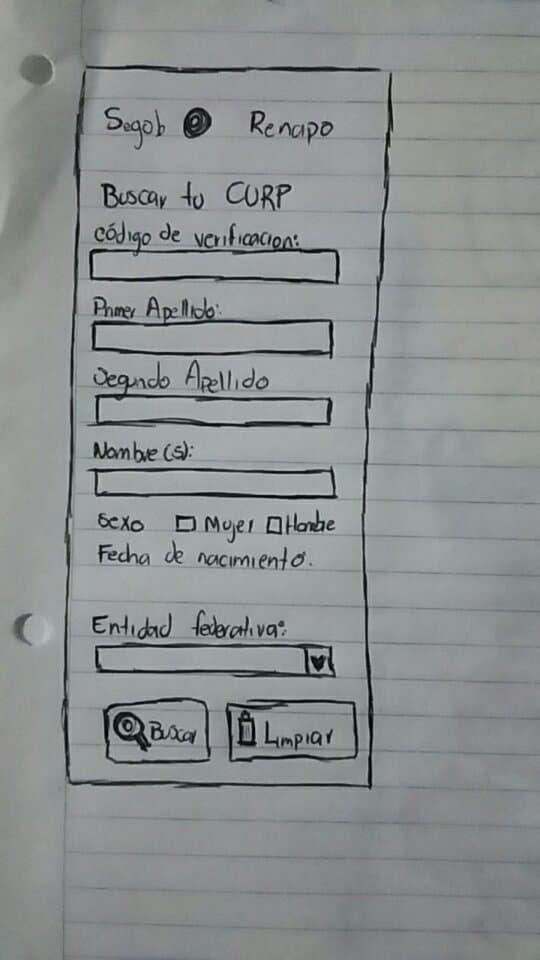 Segob Renapo
Buscar tu CURP
código de verificacion:
Primer Apellido:
Segundo Apellido
Nombre(s):
Sexo Mujer Hombe
Fecha de nacimiento.
Entidad federativa:
Buscar Limpiar